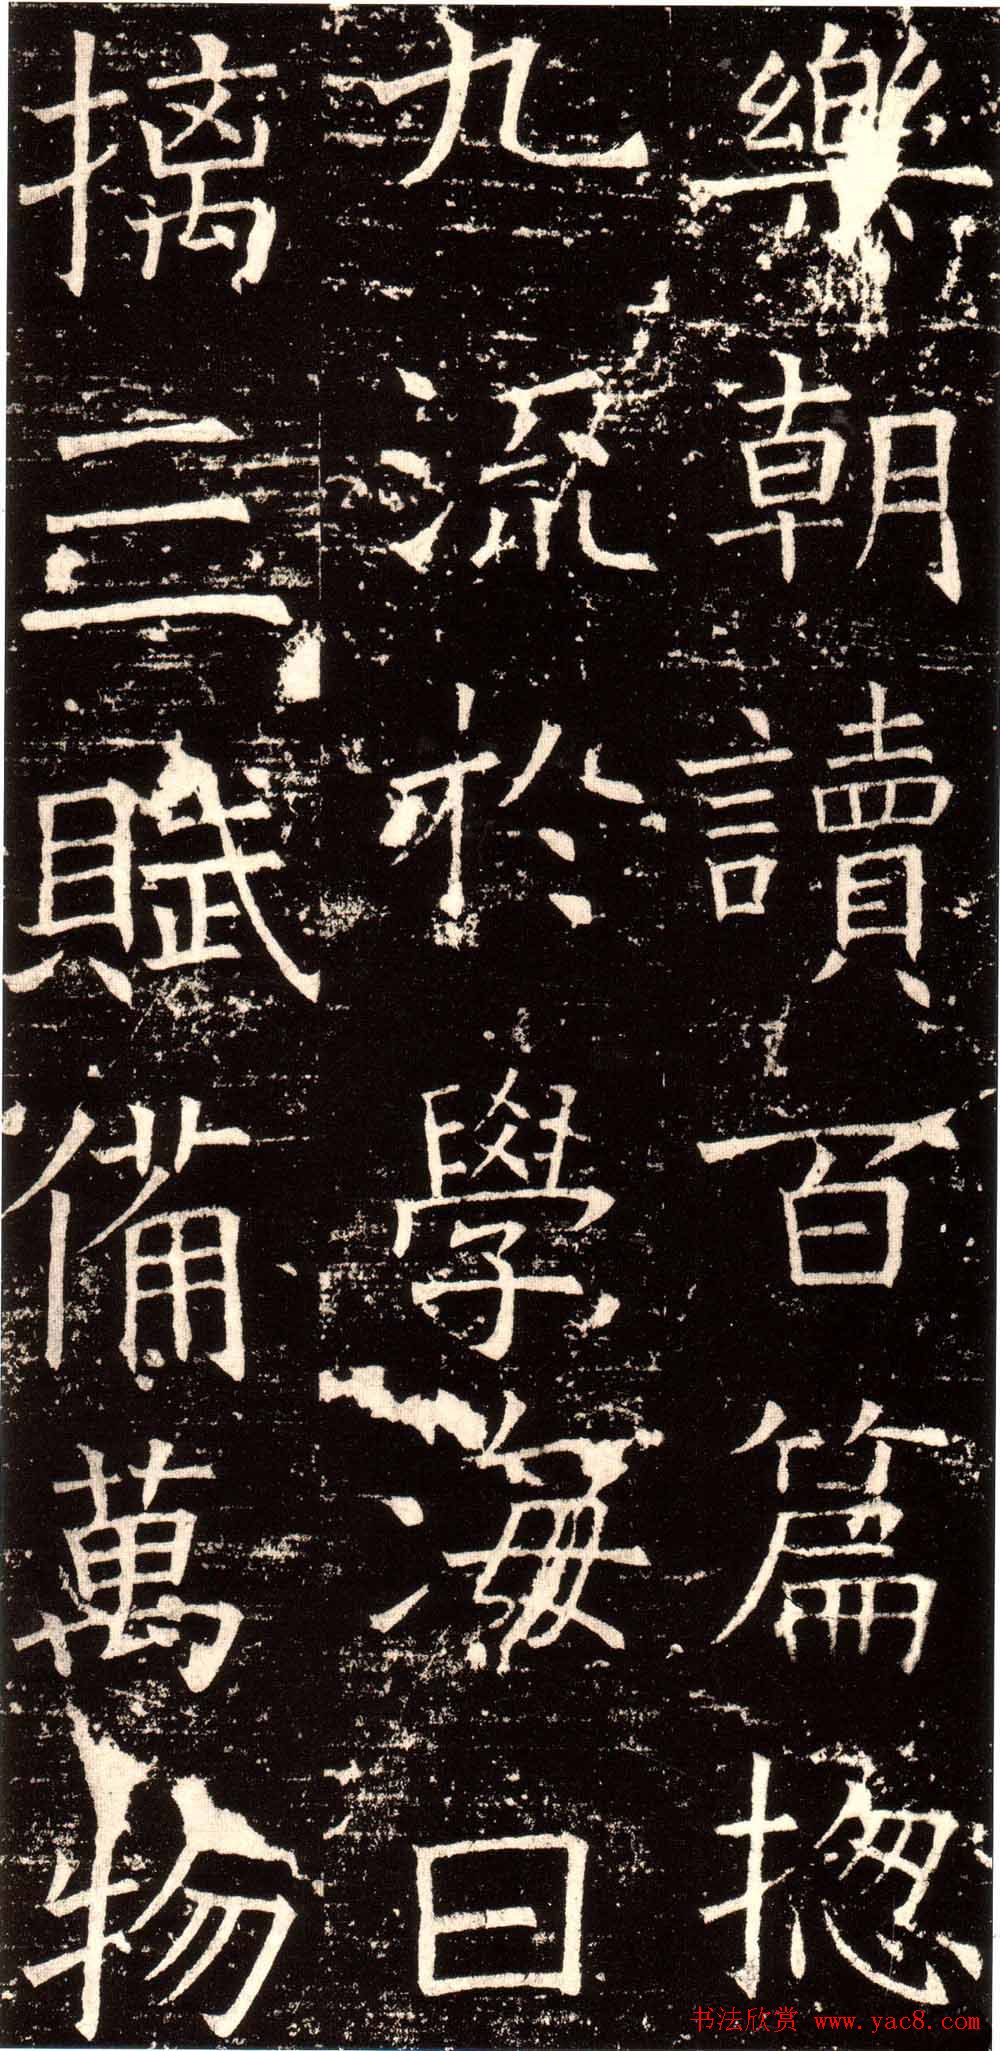 樂朝讀百篇揔
九流於學海日
摛三賦備萬物
书法欣赏 www.yac8.com